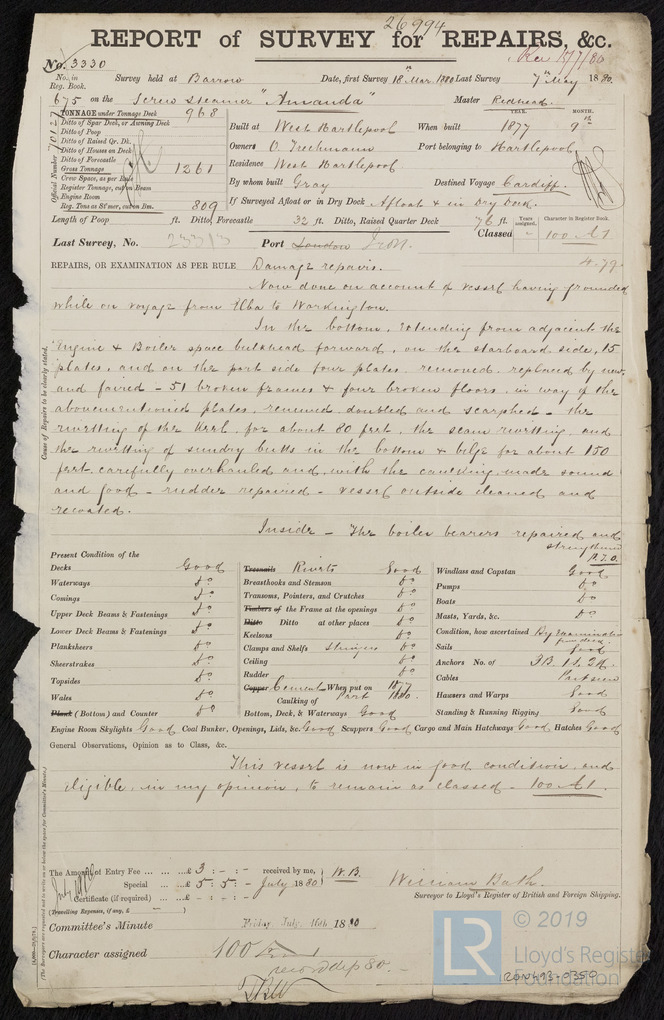 26994
REPORT of SURVEY for REPAIRS, &c.
Rec 15/7/80
No. 3330
No. in Reg. Book. Survey held at Barrow Date, first Survey 18th Mar. 1880 Last Survey 7th May 1880.
675 on the Screw Steamer "Amanda" Master Redhead.
TONNAGE under Tonnage Deck 968
Ditto of Spar Deck, or Awning Deck
Ditto of Poop
Ditto of Raised Qr. Dk.
Ditto of Houses on Deck
Ditto of Forecastle
Gross Tonnage 1261
Crew Space, as per Rule
Register Tonnage, cut on Beam
Engine Room
Reg. Tons as St'mer, cut on Bm. 809
Official Number
YEAR. MONTH.
Built at West Hartlepool When built 1877 9th
Owners O. Trechmann Port belonging to Hartlepool
Residence West Hartlepool
By whom built Gray Destined Voyage Cardiff.
If Surveyed Afloat or in Dry Dock Afloat & in Dry Dock.
Length of Poop ft. Ditto, Forecastle 32 ft. Ditto, Raised Quarter Deck 76 ft.
Years assigned. Character in Register Book.
Classed 100 A1
Last Survey, No. 23313 Port London Iron.
4.79
REPAIRS, OR EXAMINATION AS PER RULE Damage repairs.
Cause of Repairs to be clearly stated.
Now done on account of vessel having grounded
while on voyage from Elba to Workington.
In the bottom, extending from adjacent the
Engine & Boiler space bulkhead forward, on the starboard side, 15
plates, and on the port side four plates removed, replaced by new
and faired - 51 broken frames & four broken floors, in way of the
abovementioned plates, renewed, doubled and scarphed - the
rivetting of the keel, for about 80 feet, the seam rivetting and
the rivetting of sundry butts in the bottom & bilge for about 150
feet carefully overhauled and, with the caulking, made sound
and good - rudder repaired - vessel outside cleaned and
recoated.
Inside - The boiler bearers repaired and
strengthened
P.T.O.
Present Condition of the
Decks Good
Waterways do
Comings do
Upper Deck Beams & Fastenings do
Lower Deck Beams & Fastenings do
Planksheers do
Sheerstrakes do
Topsides do
Wales do
Plank (Bottom) and Counter do
Treenails Rivets Good
Breasthooks and Stemson do
Transoms, Pointers, and Crutches do
Timbers of the Frame at the openings do
Ditto Ditto at other places do
Keelsons do
Clamps and Shelfs Stringers do
Ceiling do
Rudder do
Copper Cement When put on 1877
Caulking of Part 1880.
Bottom, Deck, & Waterways Good
Windlass and Capstan Good
Pumps do
Boats do
Masts, Yards, &c. do
Condition, how ascertained By examination from deck
Sails Good
Anchors No. of 3B. 1S. 2K.
Cables Part seen
Hawsers and Warps Good
Standing & Running Rigging Good
Engine Room Skylights Good Coal Bunker, Openings, Lids, &c. Good Scuppers Good Cargo and Main Hatchways Good Hatches Good
General Observations, Opinion as to Class, &c.
This vessel is now in good condition, and
eligible, in my opinion, to remain as classed - 100 A1.
The Amount of Entry Fee £ 3 : - : - received by me, W.B.
Special £ 5 : 5 : - July 1880
Certificate (if required) - : - : -
(Travelling Expenses, if any, £ )
William Bath.
Surveyor to Lloyd's Register of British and Foreign Shipping.
Committee's Minute Friday July 16th 1880
Character assigned 100 A1
record dep 80.
LR © 2019
Lloyd's Register
Foundation
RON493-0350